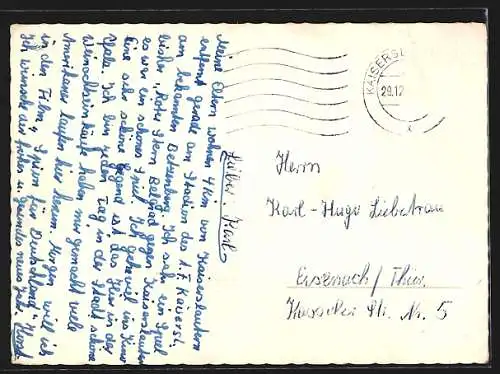 Lieber Karl
Meine Eltern wohnen 4 Km von Kaiserslautern
entfernt gerade am Stadion des 1. F. Kaisersl.
am bekannten Betzenberg. Ich sah ein Spiel
bisher, Roter Stern Belgrad gegen Kaiserslautern
es war ein schönes Spiel. Ich geh viel ins Kino
Eine sehr schöne Gegend ist das hier in der
Pfalz. Ich bin jeden Tag in der Stadt schöne
Weinachtseinkäufe haben wir gemacht viele
Amerikaner laufen hier herum Morgen will ich
in den Film 4 für Deutschland"
Ich wünsche dir frohes u. gesundes neues Jahr. Horst
KAISERSL
29.12
Herrn
Karl-Hugo Liebetrau
Eisenach/Thür.
Str. Nr. 5